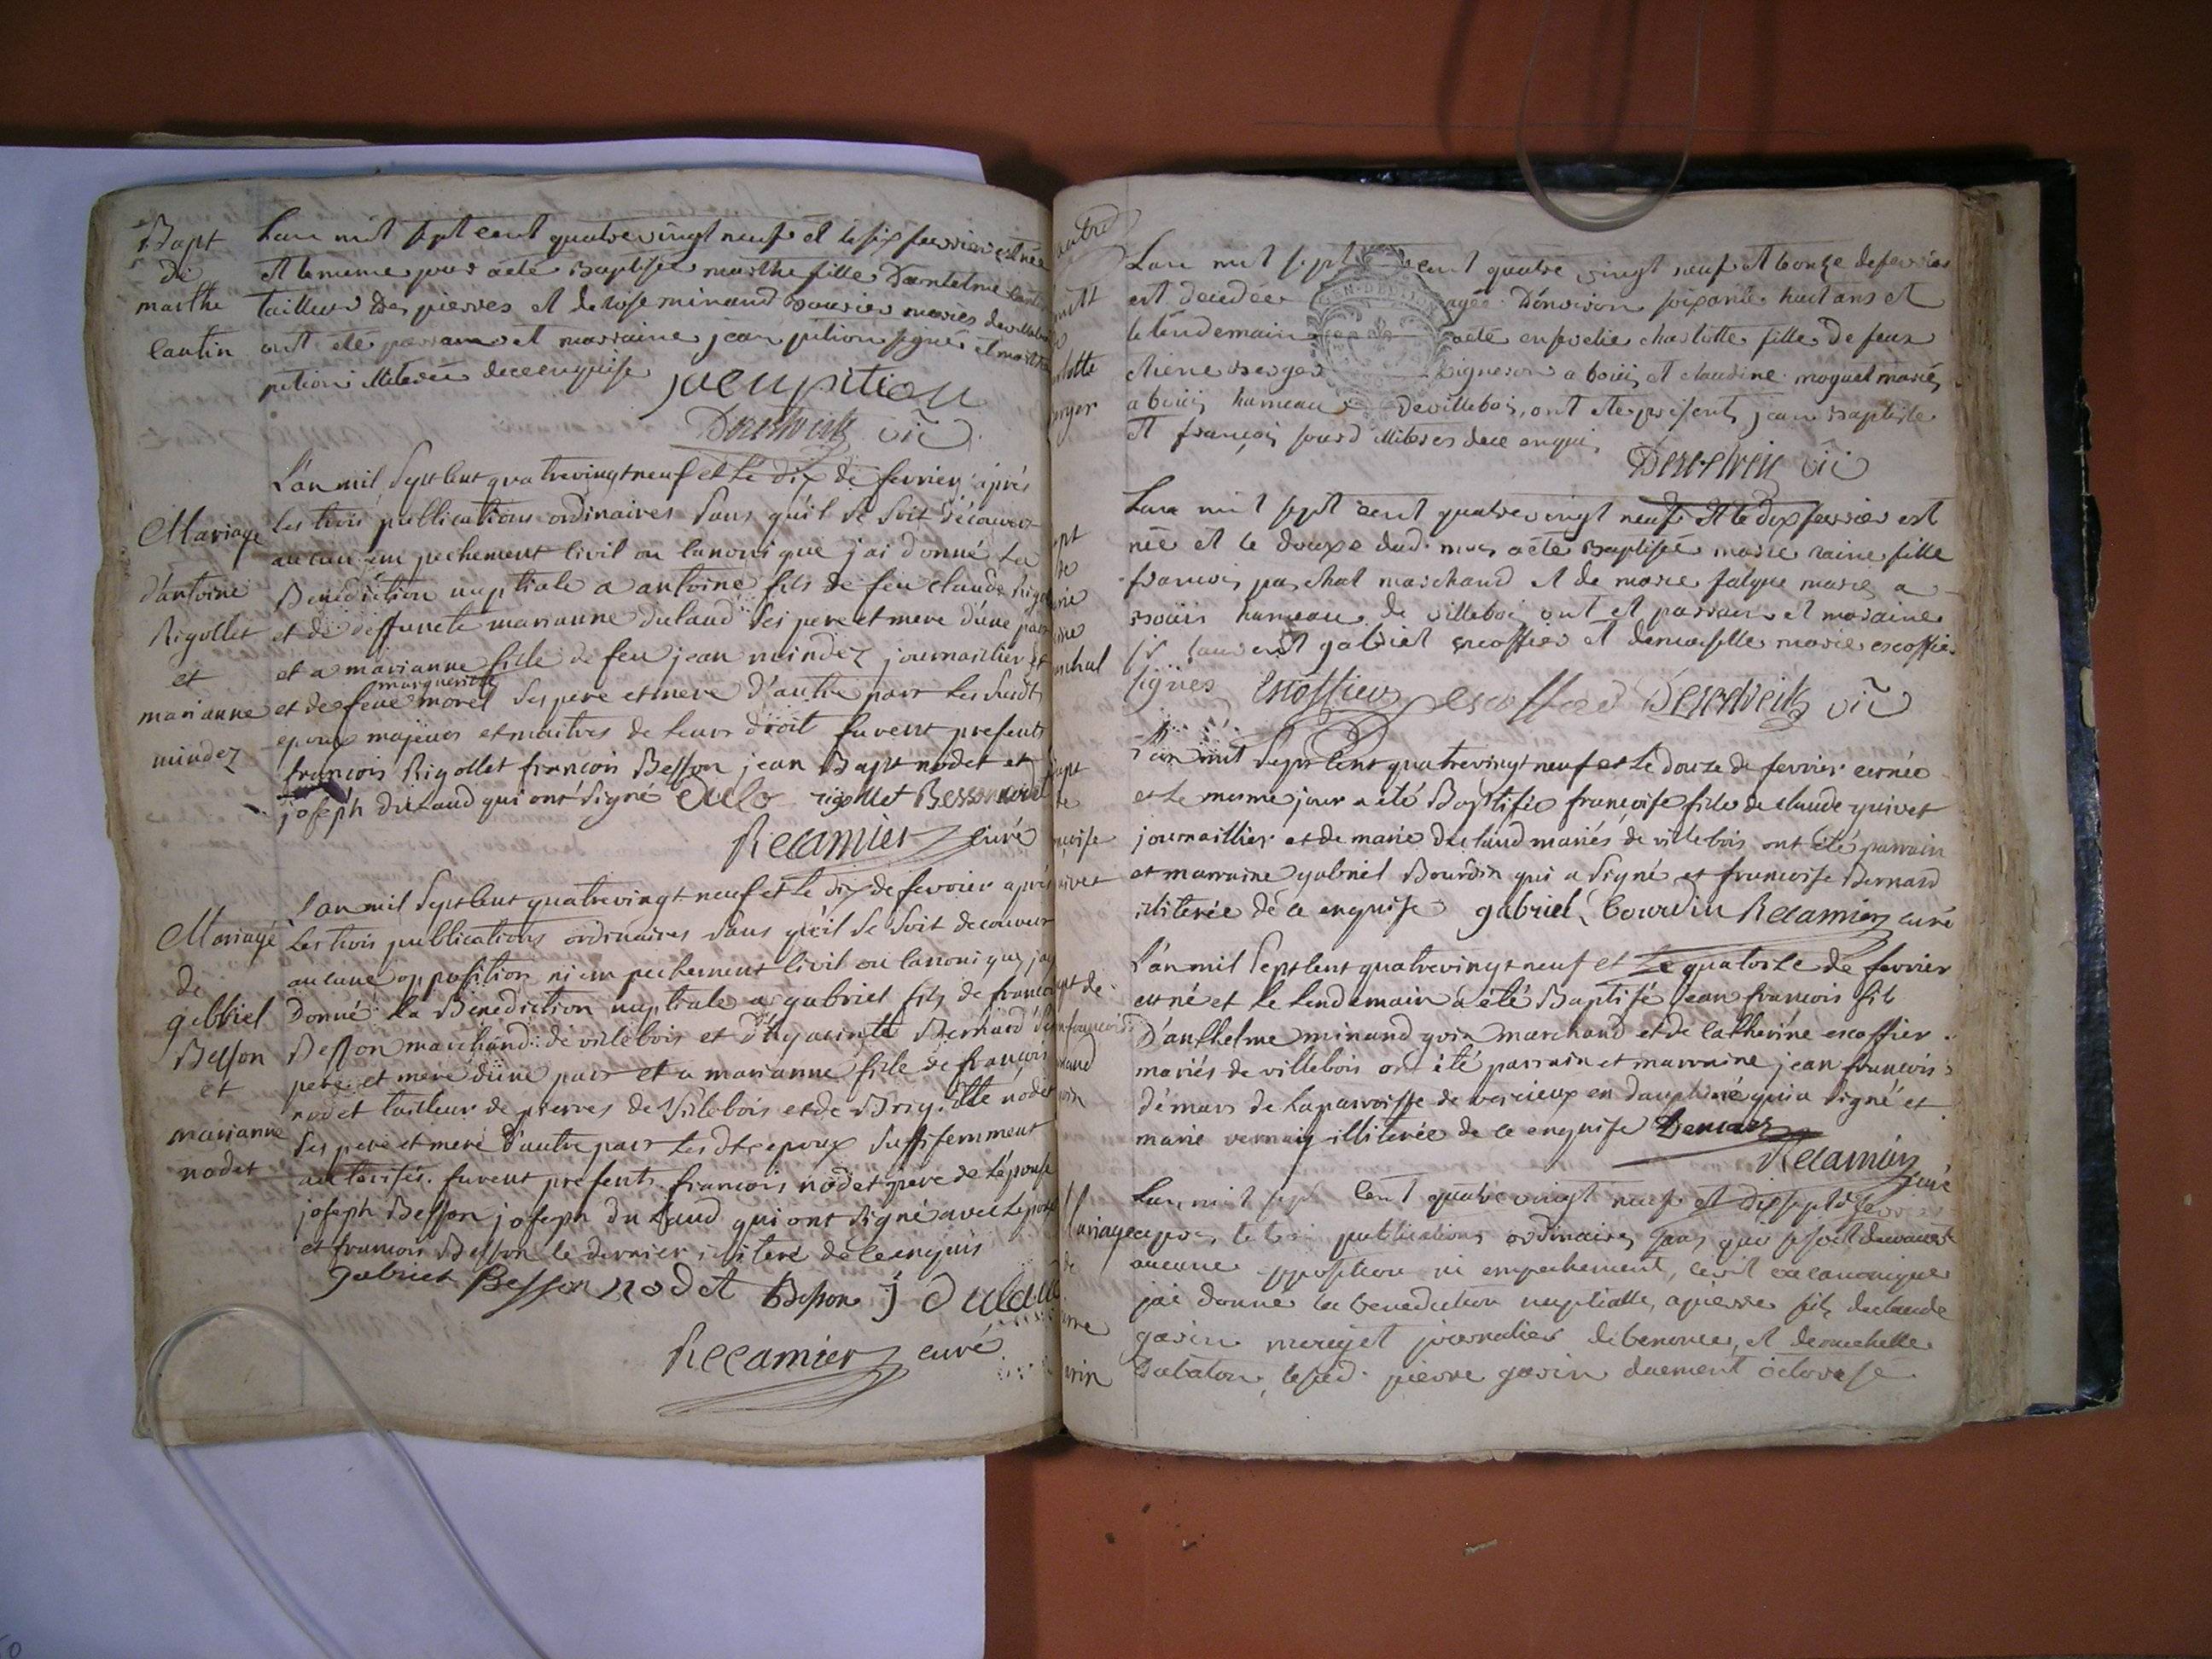 Bapt
de
marthe
Cantin
L'an mil sept cent quatre vingt neuf et le six fevrier est née
et le meme jour a eté Baptisée marthe fille D'antelme
tailleur des pierres et de rose minand mariés
ont été parrain et marraine jean pition signé et marthe
pition illiterée de ce enquise
jean pition
vic
Mariage
d'antoine
Rigollet
et
marianne
mindez
L'an mil Sept Cent quatrevingt neuf et Le dix de fevrier après
les trois publications ordinaires Sans qu'il se soit découvert
aucun empechement Civil ou Canonique j'ai donné La
Benediction nuptiale a antoine fils de feu claude
et de deffuncte marianne dulaud Ses pere et mere d'une part
et a marianne fille de feu jean mindez journaillier et
marguerite
et de feue morel Ses pere et mere d'autre part Les Susdts
epoux majeurs et maitres de leurs droit furent presents
francois Rigollet francois Besson jean Bapt nodet et
joseph duLaud qui ont Signé dulo rigollet Besson nodet
Recamier curé
Mariage
de
gabriel
Besson
et
marianne
nodet
L'an mil Sept Cent quatrevingt neuf et Le dix de fevrier après
Les trois publications ordinaires Sans qu'il se soit decouvert
aucune opposition ni empechement Civil ou Canonique j'ay
Donné la Benediction nuptiale a gabriel fils de francois
Besson marchand de villebois et d'hyacinte Bernard Ses
pere et mere d'une part et a marianne fille de francois
nodet tailleur de pierres de Villebois et de Brigitte nodet
Ses pere et mere d'autre part Les dts epoux Suffisemment
autorisés. furent presents francois nodet pere de L'épouse
joseph Besson joseph du Laud qui ont Signé avec L'epoux
et francois Besson le dernier illiteré de ce enquis
gabriel Besson nodet Besson j dulaud
Recamier curé
L'an mil sept cent quatre vingt neuf et le onze de fevrier
est decedée agée D'environ soixante huit ans et
le lendemain a eté ensevelie charlotte fille de feux
vigneron a bouis et claudine moguet mariés
a bouis hameau de villebois, ont ete presents jean Baptiste
et françois illiteres de ce enquis
vic
L'an mil sept cent quatre vingt neuf et le dix fevrier est
née et le douze dud. mois a été Baptisée marie reine fille
francois paschal marchand et de marie falque mariés a
Bouis hameau de villebois ont eté parrain et maraine
sr laurent gabriel escoffier et demoiselle marie escoffier
signés escoffier escoffier vic
L'an mil Sept Cent quatrevingt neuf et Le douze de fevrier est née
et Le mesme jour a été Baptisée françoise fille de claude quivet
journaillier et de marie dulaud mariés de villebois ont été parrain
et marraine gabriel Bourdin qui a Signé et francoise Bernard
illiterée de ce enquise gabriel bourdin Recamier curé
L'an mil Sept Cent quatrevingt neuf et Le quatorze de fevrier
est né et Le Lendemain a été Baptisé jean francois fils
D'anthelme minand goin marchand et de Catherine escoffier
mariés de villebois ont été parrain et marraine jean francois
démars de La parroisse de vercieux en dauphiné qui a Signé et
marie vernay illiterée de ce enquise Demars
Recamier curé
Mariage
L'an mil sept Cent quatre vingt neuf et dix sept de fevrier
apres les trois publications ordinaires sans qu'il se soit decouvert
aucune opposition ni empechement, civil ou canonique
j'ai donné la benediction nuptialle, a pierre fils de claude
gorin mercyet journalier de benonce, et de michelle
Dubaton, lesud. pierre gorin duement octorisé